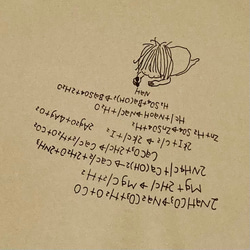 NAH
H₂SO₄+Ba(OH)₂→BaSO₄+2H₂O
HCl+NaOH→NaCl+H₂O
Zn+H₂SO₄→ZnSO₄+H₂
2KI+Cl₂→2KCl+I₂
2Ag₂O→4Ag+O₂
CaCO₃+2HCl→CaCl₂+H₂O+CO₂
2NH₄Cl+Ca(OH)₂→CaCl₂+2H₂O+2NH₃
Mg+2HCl→MgCl₂+H₂
2NaHCO₃→Na₂CO₃+H₂O+CO